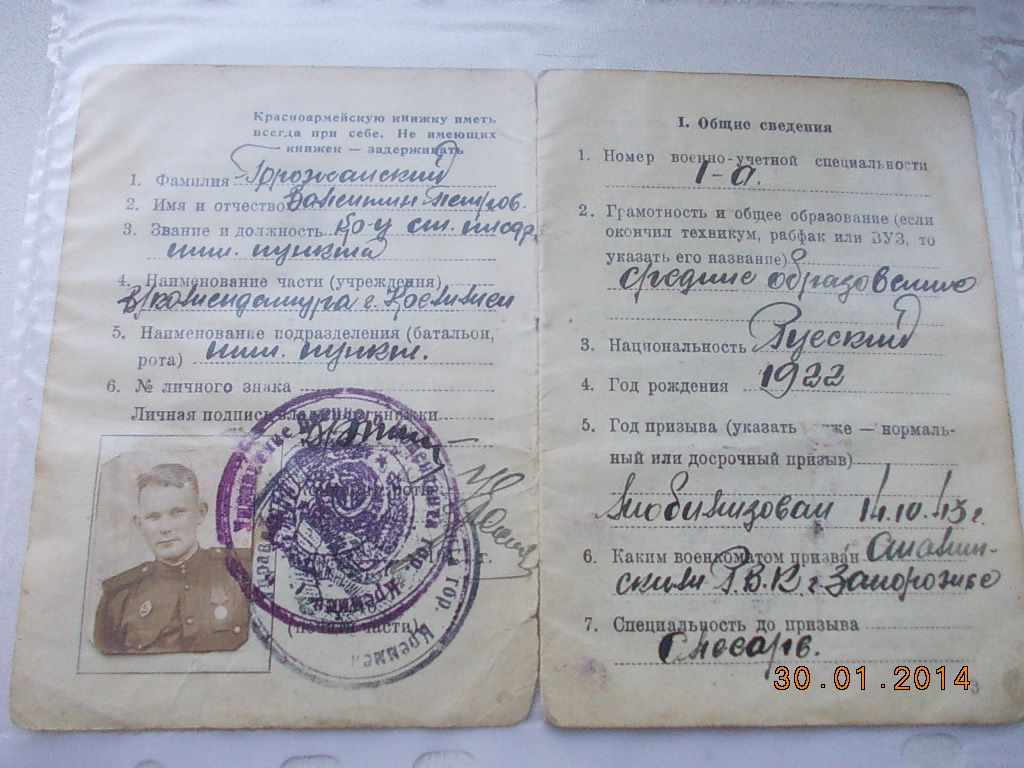 Красноармейскую книжку иметь
всегда при себе. Не имеющих
книжек — задерживать
1. Фамилия Горожанский
2. Имя и отчество Валентин Петров.
3. Звание и должность
пункта
4. Наименование части (учреждения)
В/комендатура г.
5. Наименование подразделения (батальон,
рота) пункт.
6. № личного знака
Личная подпись владельца книжки
(печать части)
I. Общие сведения
1. Номер военно-учетной специальности
1-а.
2. Грамотность и общее образование (если
окончил техникум, рабфак или ВУЗ, то
указать его название)
среднее образование
3. Национальность Русский
4. Год рождения 1922
5. Год призыва (указать же — нормаль-
ный или досрочный призыв)
Мобилизован 14.10.43 г.
6. Каким военкоматом призван Сталин-
ским Р.В.К г. Запорожье
7. Специальность до призыва
Слесарь.
30.01.2014
3